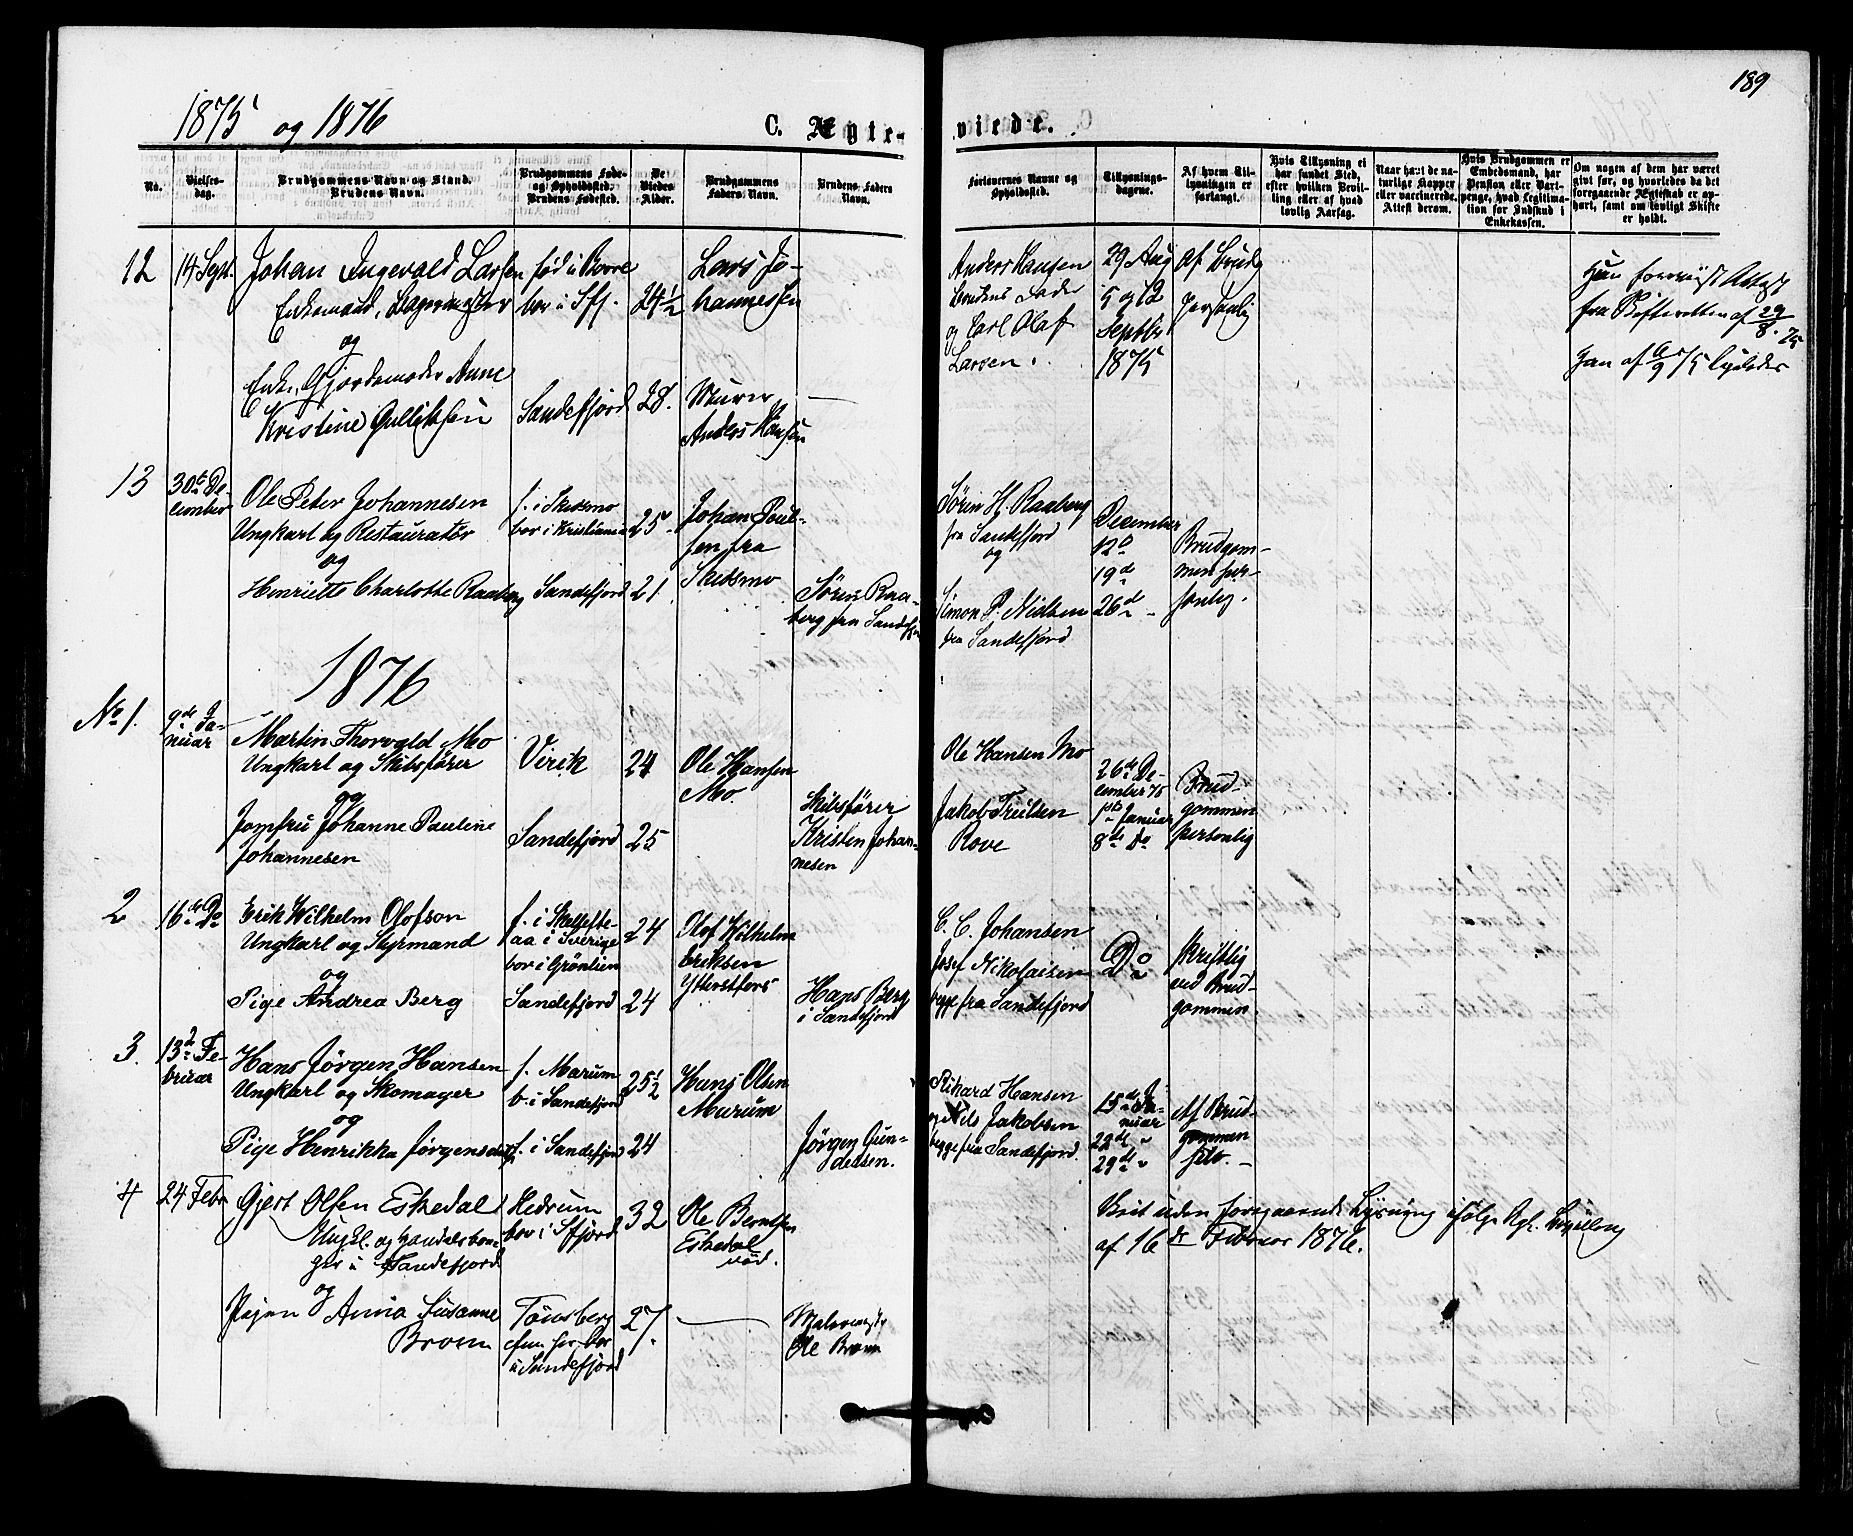 1875 og 1876
C. Ægte-
viede.
189
No.
Vielses-
dag.
Brudgommens Navn og Stand.
Brudens Navn.
Brudgommens Føde-
og Opholdssted.
Brudens Fødested.
De
Viedes
Alder.
Brudgommens
Faders Navn.
Brudens Faders
Navn.
Forlovernes Navne og
Opholdssted.
Tillysnings-
dagene.
Af hvem Til-
lysningen er
forlangt.
Hvis Tillysning ei
har fundet Sted,
efter hvilken Bevil-
ling eller af hvad
lovlig Aarsag.
Naar havt de na-
turlige Kopper
eller vaccinerede.
Attest derom.
Hvis Brudgommen er
Embedsmand, har
Pension eller Vart-
penge, hvad Legitima-
tion for Indskud i
Enkekassen.
Om nogen af dem har været
givt før, og hvorledes da det
foregaaende Ægteskab er op-
hørt, samt om lovligt Skifte
er holdt.
12
14 Sept.
Johan Ingevald Larsen
Enkemand,
og
Enke, Gjordemoder Anne
Kristine Gulliksen
fød i Borre
bor i Sfj.
Sandefjord
24 1/2
28.
Lars Jo-
hannessen
Murer
Anders Hansen
Anders Hansen
Brudens Fader
og Carl Olaf
Larsen.
29 Aug
5 og 12
Septbr
1875
Af Brudg
personlig
Hun foreviist Attest
fra Skifteretten af 29/8. 75
Han af
13
30te De-
cember
Ole Peter Johannesen
Ungkarl og Restauratør
og
Henriette Charlotte Raaberg
f. i Skedsmo
bor i Kristiania
Sandefjord
25
21.
Johan Poul-
sen fra
Skedsmo
Søren Raa-
berg fra Sandefj
Sørin H. Raaberg
fra Sandefjord
og
Simon P. Nielsen
fra Sandefjord
December
12te
19de
26de
Brudgom-
men per-
sonlig.
1876
No 1.
9de Ja-
nuar
Martin Thorvald Mo
Ungkarl og Skibsfører
og
Jomfru Johanne Pauline
Johannesen
Virik
Sandefjord
24
25
Ole Hansen
Mo.
Skibsfører
Kristen Johan-
nesen
Ole Hansen Mo
Jakob Trulsen
Rove
26de De-
cember 75
1ste Januar
8de Do
Brud-
gommen
personlig
2
16de Do
Erik Wilhelm Olofson
Ungkarl og Styrmand
og
Pige Andrea Berg
f. i Skellefte-
aa i Sverige
bor i Grönlien
Sandefjord
24
24
Olof Wilhelm
Eriksen
Ytterstfors
Hans Berg
i Sandefjord
C. C. Johansen
Josef Nikolaisen
begge fra Sandefjord
Do
skriftlig
ved Brud-
gommen
3.
13de Fe-
bruar
Hans Jörgen Hansen
Ungkarl og Skomager
og
Pige Henrikka Jørgensdatt.
f. Marum
b. i Sandefjord
f. i Sandefjord
25 1/2
24
Hans Olsen
Marum
Jørgen Gun-
dersen.
Rikard Hansen
og Nils Jakobsen
begge fra Sandefjord.
15de Ja-
nuar
22de "
29de "
Af Brud-
gommen
selv.
4
24 Febr
Gjert Olsen Eskedal
Ungkl. og Handelsbor-
ger i Sandefjord
og
Pigen Anna Susanne
Brown
Hedrum
bor i Sfjord
Tønsberg
bor
i Sandefjord
32
27.
Ole Berntsen
Eskedal
død.
Ole Brown
Viet uden foregaaende Lysning ifølge Kgl. Bevilling
af 16de Februar 1876.